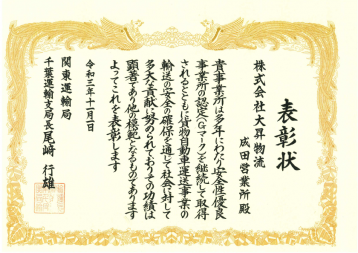 表彰状
株式会社大昇物流
成田営業所殿
貴事業所は多年にわたり安全性優良
事業所の認定(Gマーク)を継続して取得
されるとともに貨物自動車運送事業の
輸送の安全の確保を通じて社会に対して
多大な貢献に努められておりその功績は
顕著であり他の模範となるものであります
よってこれを表彰します
令和三年十一月一日
関東運輸局
千葉運輸支局長尾崎行雄